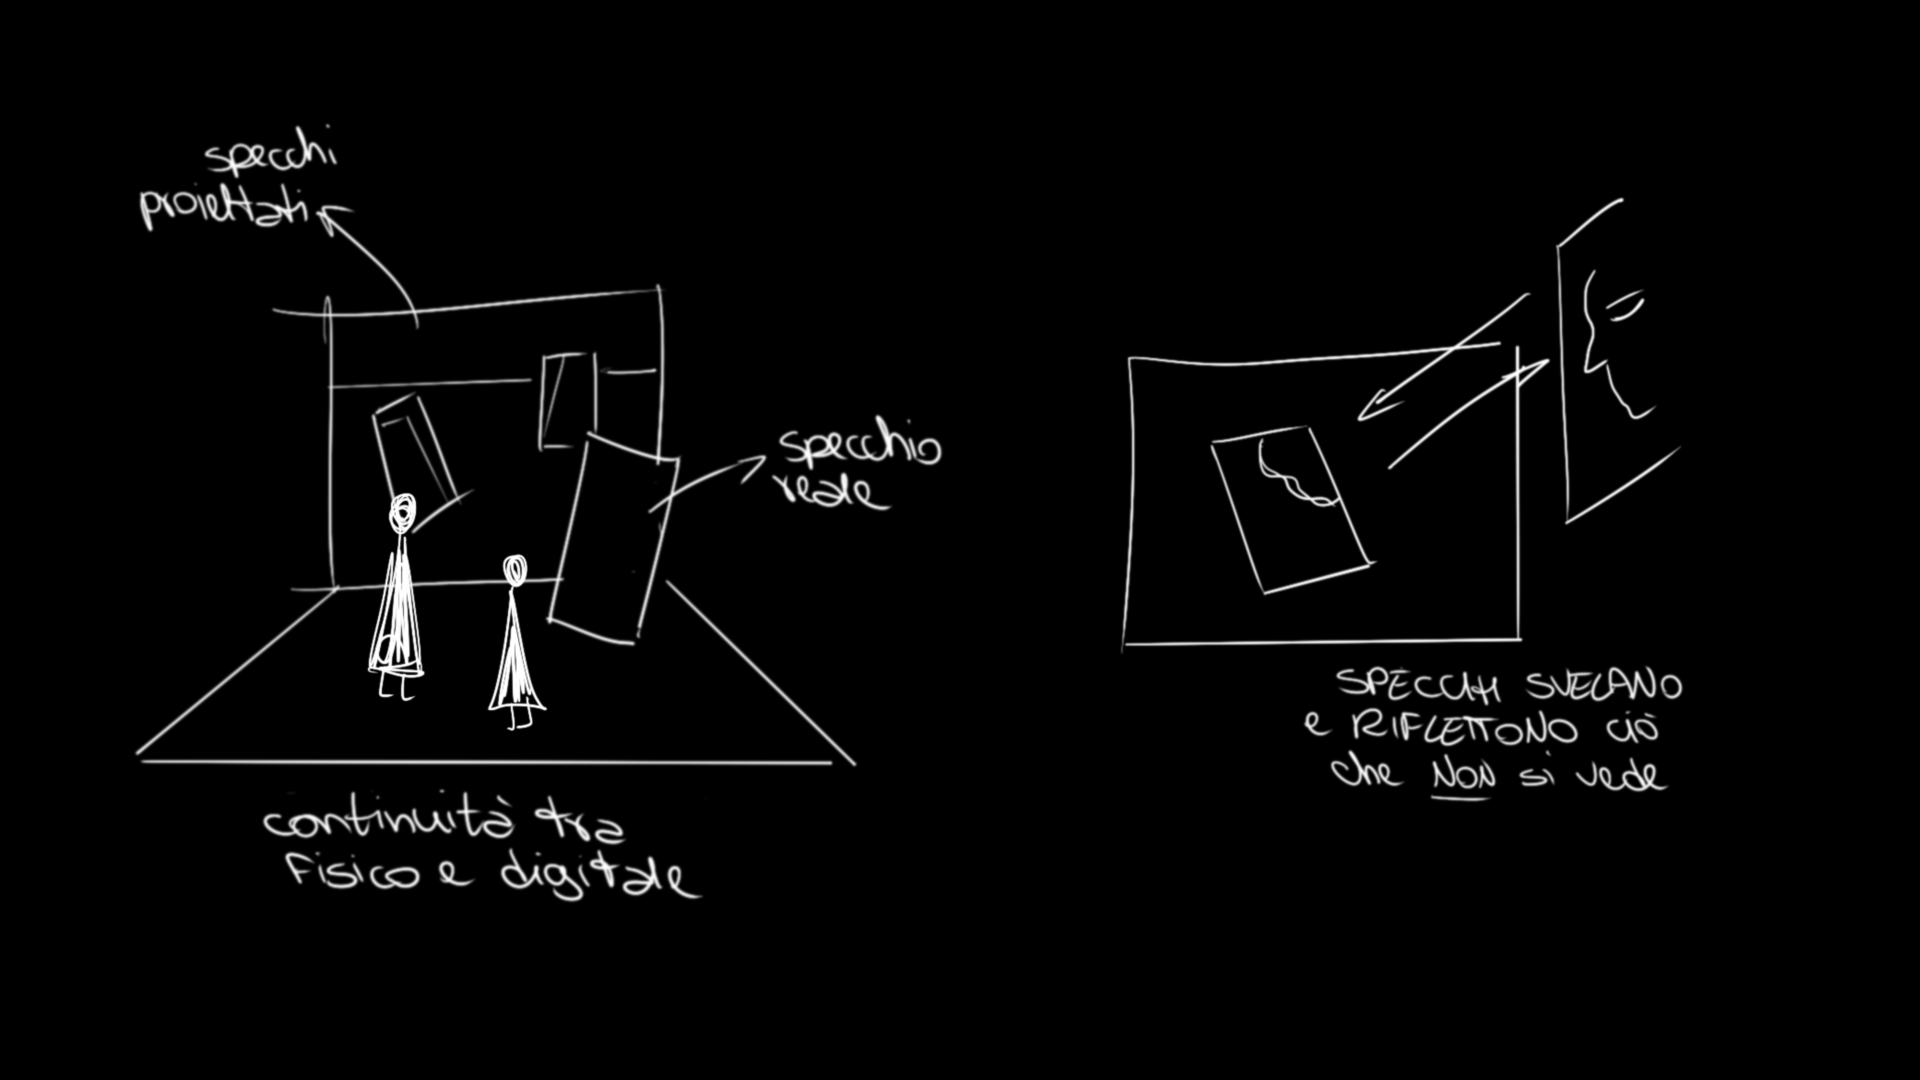 specchi
proiettati
specchio
reale
continuità tra
fisico e digitale
SPECCHI SVELANO
e RIFLETTONO ciò
che NON si vede